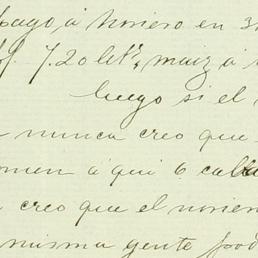 pago, á noriero en 3
7.20 lets, maiz á
luego si el
nunca creo que
omen á qui 6 caba
creo que el norie
misma gente pod